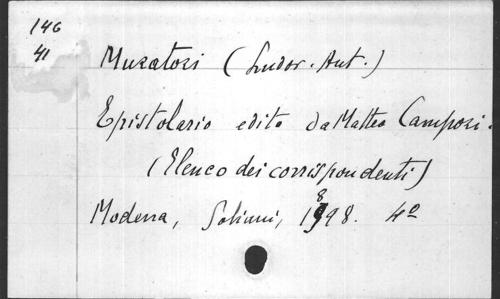 146
41
Muratori (Ludov. Ant.)
Epistolario edito da Matteo Campori.
(Elenco dei corrispondenti)
Modena, Soliani, 1898. 4º